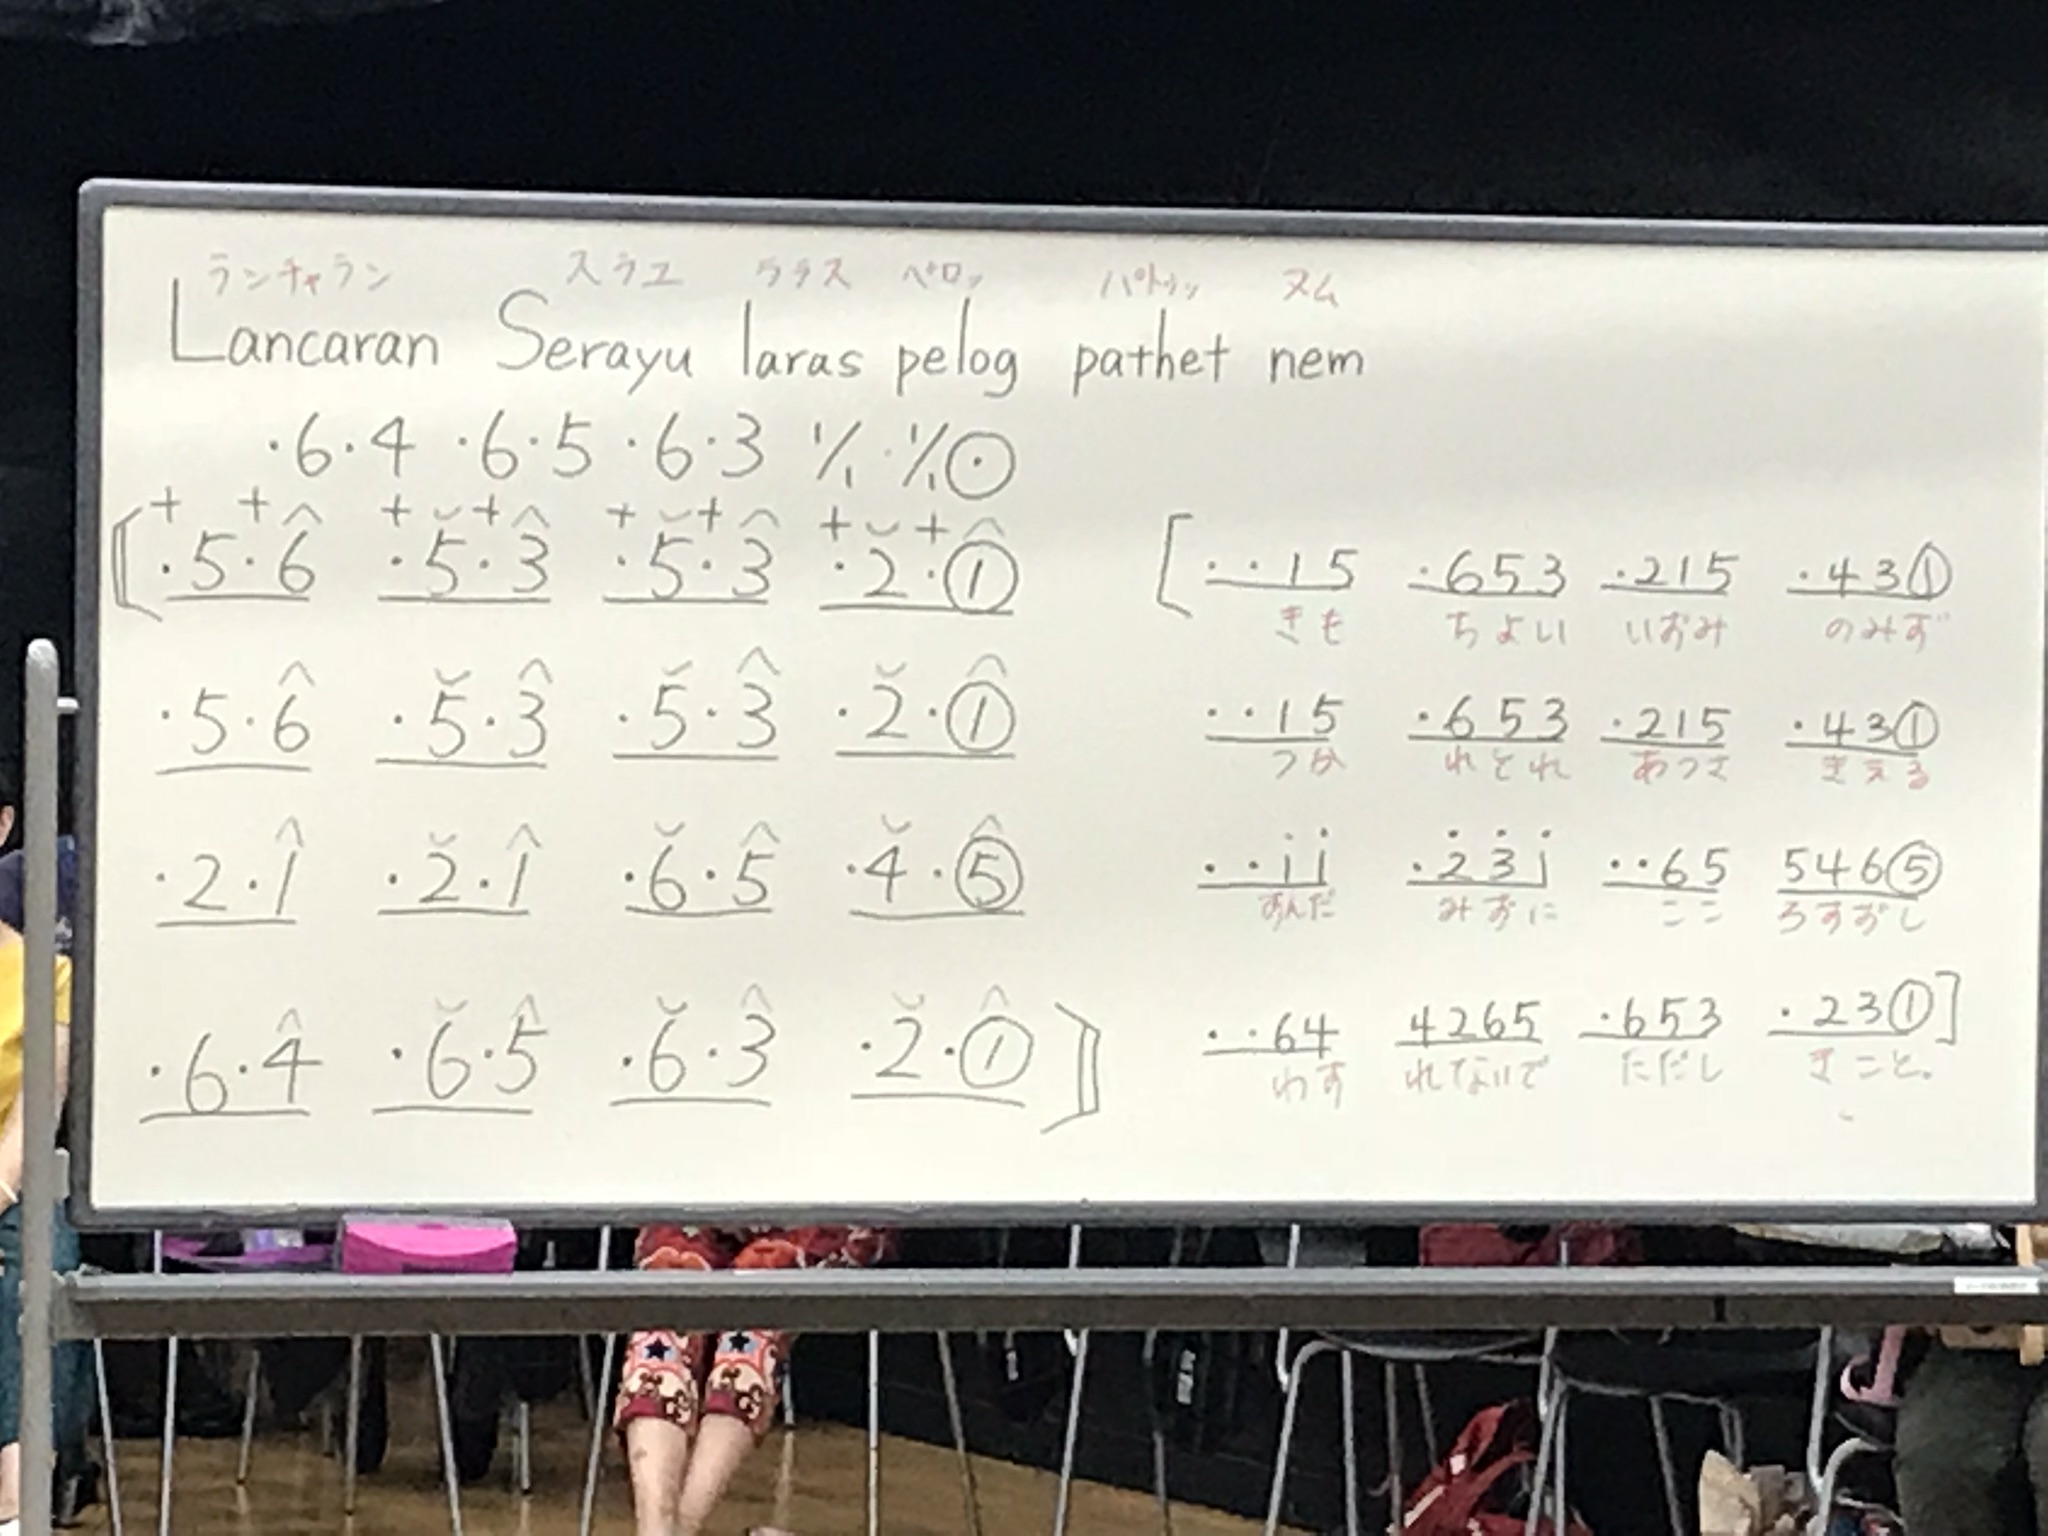 ランチャラン スラユ ララス ペロッ パトゥッ ヌム
Lancaran Serayu laras pelog pathet nem
·6·4 ·6·5 ·6·3 1/1 · 1/1 ⊙
+ + + + + + + +
[ ·5·6 ·5·3 ·5·3 ·2·①
·5·6 ·5·3 ·5·3 ·2·①
·2·1 ·2·1 ·6·5 ·4·⑤
·6·4 ·6·5 ·6·3 ·2·① ]
[ ··15 ·653 ·215 ·43①
きも ちよい いずみ のみず
··15 ·653 ·215 ·43①
つか れとれ あつさ きえる
··1̇1̇ ·2̇3̇1̇ ··65 546⑤
すんだ みずに ここ ろすずし
··64 4265 ·653 ·23① ]
わす れてないで ただし きこと。